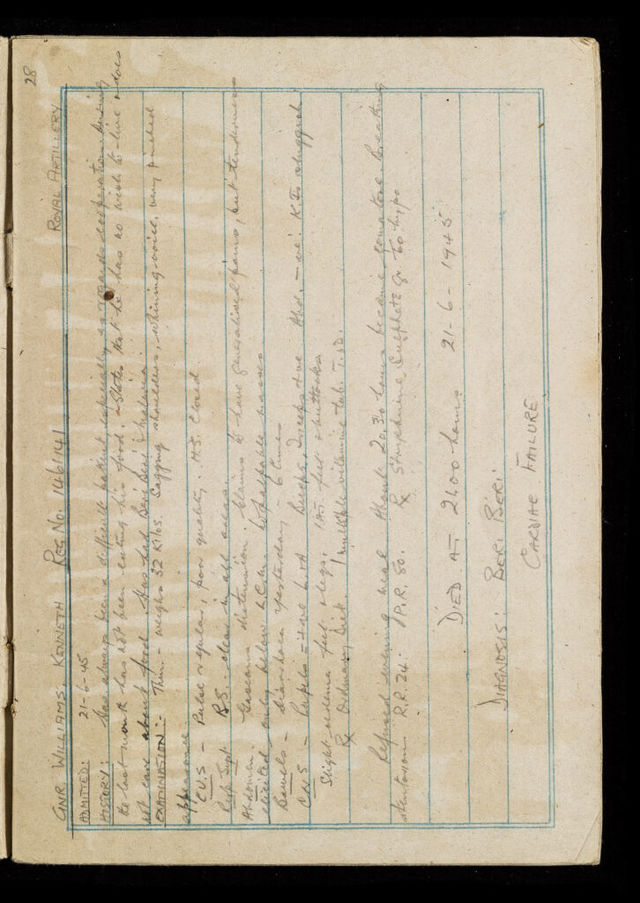 28
GNR WILLIAMS. KENNETH REG. No. 1461141 ROYAL ARTILLERY
ADMITTED: 21-6-45
HISTORY: Has always been a difficult patient especially as regards cooperation. During
the last month has not been eating his food. States that he has no wish to live & does
not care about food. Has had Beri Beri & malaria.
EXAMINATION:- Thin. - weighs 52 Kilos. Sagging shoulders, whining voice. very pinched
appearance
C.V.S - Pulse regular, poor quality. H.S. Closed
Resp Syst R.S. clear in all areas
Abdomen. distension. Claims to have generalised pains, but tenderness
elicited only below & No palpable masses
Bowels - diarrhoea yesterday - 6 times
C.N.S - Pupils Biceps, Triceps +ve Abd. -ve K.Js sluggish
Slight oedema feet & legs. feet & buttocks
Rx Ordinary Diet. 1 multiple vitamine tab. T.I.D.
Refused evening meal About 20.30 hours became comatose breathing
stentorous R.R. 24. P.R. 80. Rx Strychnine Sulphate gr. 1/60 hypo
DIED AT 2400 hours 21-6-1945
DIAGNOSIS: BERI BERI.
CARDIAC FAILURE